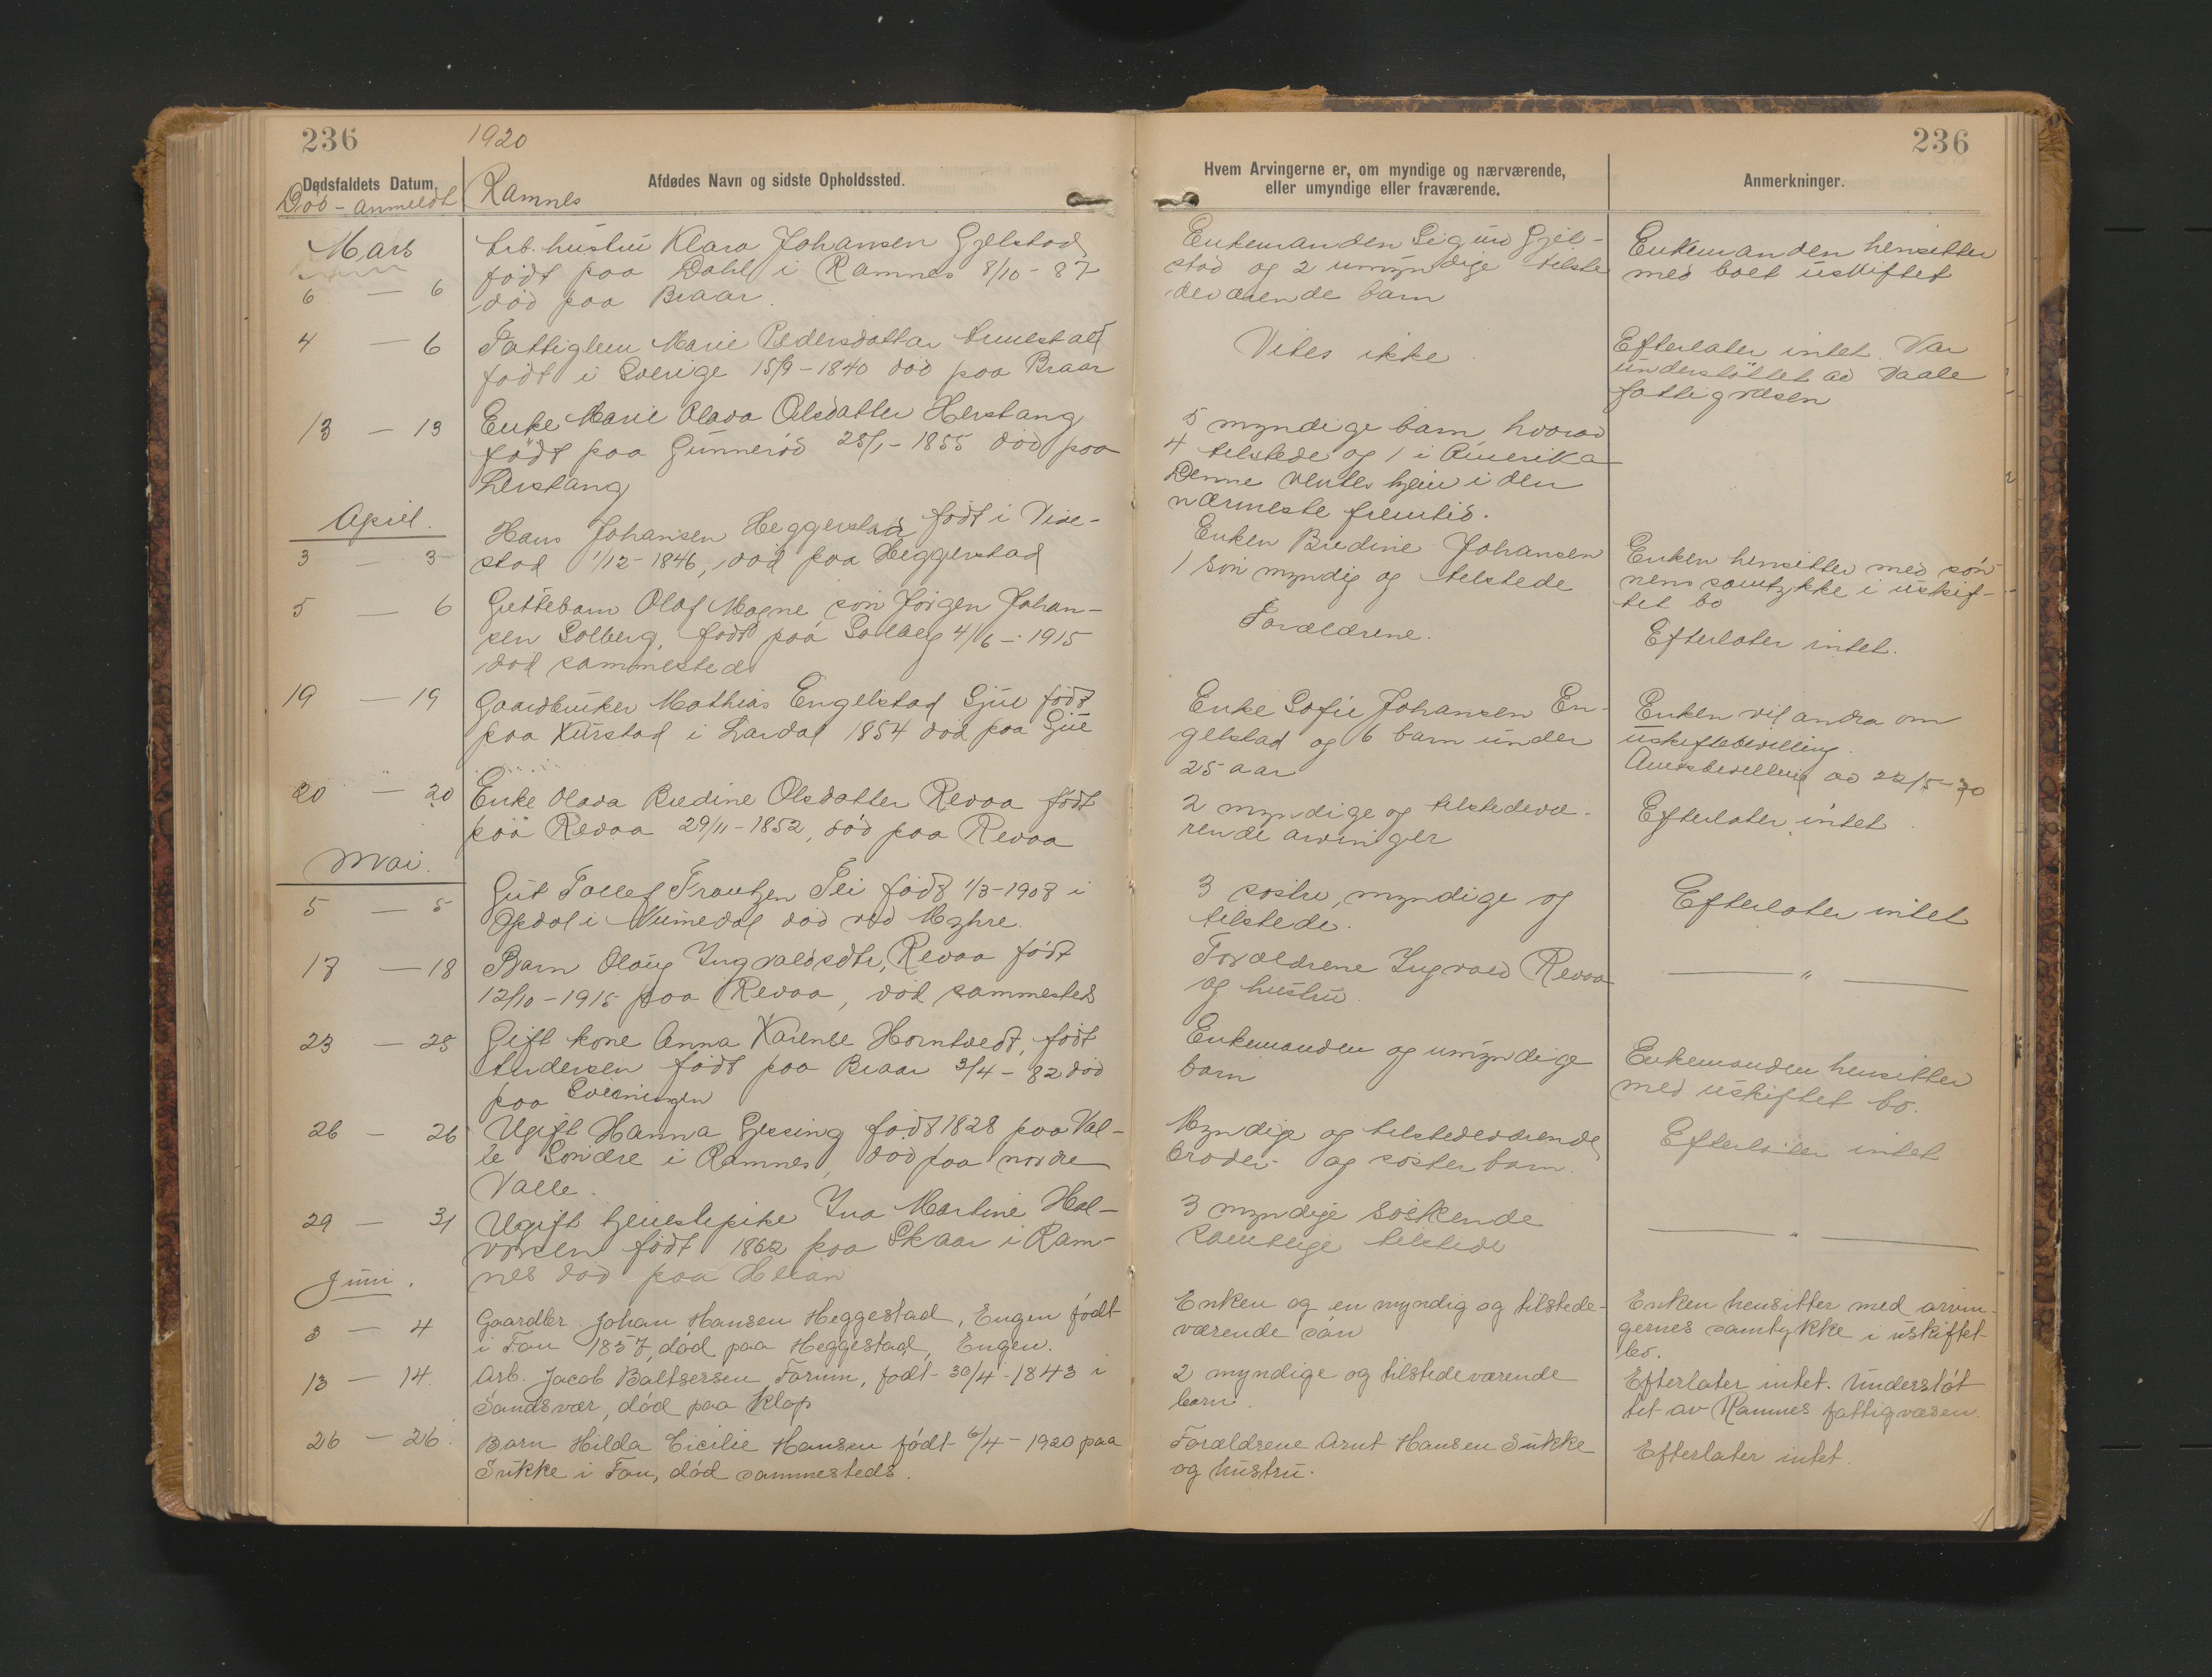 236
1920
236
Dødsfaldets Datum.
Død - anmeldt
Ramnes
Afdødes Navn og sidste Opholdssted.
Hvem Arvingerne er, om myndige og nærværende,
eller umyndige eller fraværende.
Anmerkninger.
Mars
6 — 6
Arb. hustru Klara Johansen Gjelstad
født paa Dahl i Ramnes 8/10 - 87
død paa Braar.
Enkemanden Sigurd Gjel-
stad og 2 umyndige tilste
deværende barn
Enkemanden hensitter
med boet uskiftet
4 — 6
Fattiglem Marie Pedersdatter
født i Sverige 15/9 - 1840 død paa Braar
Vites ikke
Efterlater intet. Var
understøttet av Vaale
fattigvæsen
13 — 13
Enke Marie Olava Olsdatter Herstang
født paa Gunnerød 25/1 - 1855 død paa
Herstang
5 myndige barn, hvorav
4 tilstede og 1 i Amerika
Denne ventes hjem i den
nærmeste fremtid.
April.
3 — 3
Hans Johansen Heggerstad født i Vive-
stad 1/12 - 1846, død paa Heggerstad
Enken Bredine Johansen
1 søn myndig og tilstede
Enken hensitter med søn
nens samtykke i uskif-
tet bo
5 — 6
Guttebarn Olaf Magne søn Jørgen Johan-
sen Solberg, født paa Solberg 4/6 - 1915
død sammesteds
Forældrene.
Efterlater intet.
19 — 19
Gaardbruker Mathias Engelstad Gjue født
paa Kurstad i Lardal 1854 død paa Gjue
Enke Sofie Johansen En-
gelstad og 6 barn under
25 aar
Enken vil andra om
uskiftebevilling.
Amtsbevilling av 22/5 - 20
20 — 20
Enke Olava Bredine Olsdatter Revaa født
paa Revaa 29/11 - 1852, død paa Revaa
2 myndige og tilstedevæ-
rende arvinger
Efterlater intet
Mai.
5 — 5
Gut Tollef Frantzen Fli født 1/3 - 1908 i
Opdal i Numedal død ved Myhre.
3 søstre, myndige og
tilstede.
Efterlater intet
17 — 18
Barn Olaug Ingvaldsdtr, Revaa født
12/10 - 1915 paa Revaa, død sammesteds
Forældrene Ingvald Revaa
og hustru.
— " —
23 — 25
Gift kone Anna Karense Horntvedt, født
Andersen født paa Braar 3/4 - 82 død
paa
Enkemanden og umyndige
barn
Enkemanden hensitter
med uskiftet bo.
26 — 26
Ugift Hanna Gjessing født 1828 paa Val-
le Søndre i Ramnes, død paa nordre
Valle.
Myndige og tilstedeværende
broder- og søsterbarn.
Efterlater intet
29 — 31
Ugift tjenestepike Ina Martine Hal-
vorsen født 1862 paa Skaar i Ram-
nes død paa Helian
3 myndige søskende
samtlige tilstede
— " —
Juni.
3 — 4
Gaardbr. Johan Hansen Heggestad, Engen født
i Fon 1857, død paa Heggestad, Engen.
Enken og en myndig og tilstede-
værende søn
Enken hensitter med arvin-
gernes samtykke i uskiftet
bo.
13 — 14.
Arb. Jacob Baltsersen Farum, født 30/4 - 1843 i
Sandsvær, død paa Klop
2 myndige og tilstedeværende
barn.
Efterlater intet. Understøt
tet av Ramnes fattigvæsen.
26 — 26.
Barn Hilda Cicilie Hansen født 6/4 - 1920 paa
Sukke i Fon, død sammesteds.
Forældrene Arnt Hansen Sukke
og hustru.
Efterlater intet.